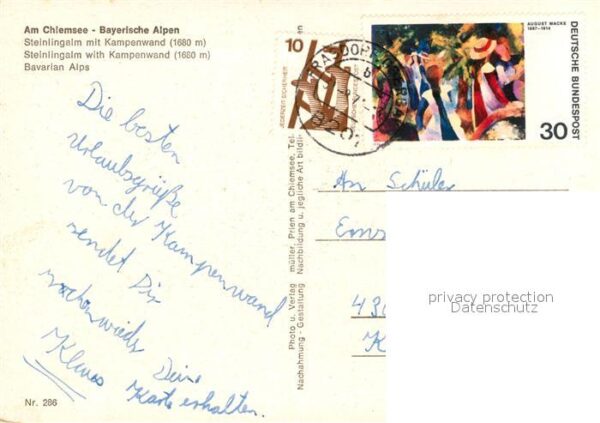 Am Chiemsee - Bayerische Alpen
Steinlingalm mit Kampenwand (1680 m)
Steinlingalm with Kampenwand (1680 m)
Bavarian Alps
10
JEDERZEIT SICHERHEIT
AUGUST MACKE
1887-1914
DEUTSCHE BUNDESPOST
30
Die besten
Urlaubsgrüße
von der Kampenwand
sendet Dir
Klaus
Deine
Karte erhalten.
An Schüler
privacy protection
Datenschutz
Photo u. Verlag müller, Prien am Chiemsee, Tel.
Nachahmung - Gestaltung Nachbildung u. jegliche Art bildli
Nr. 286